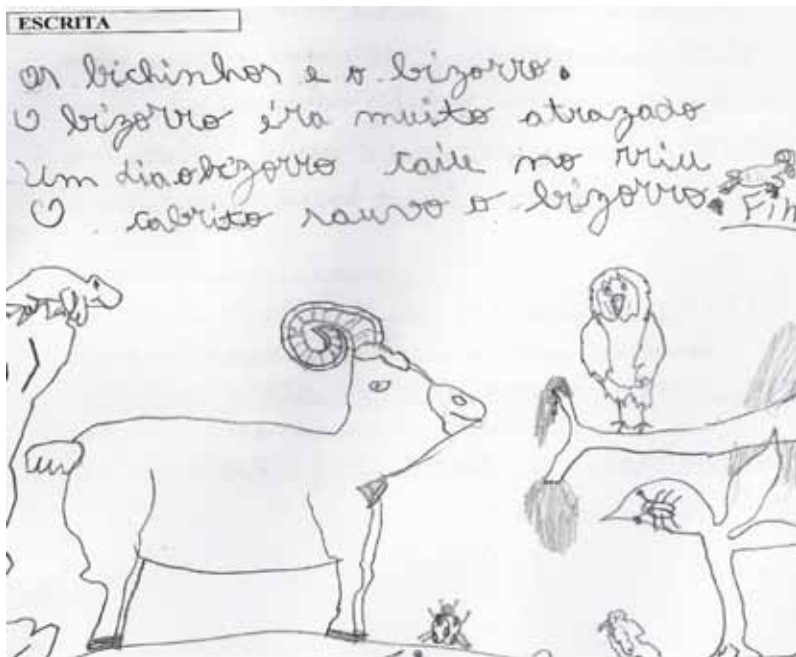 ESCRITA
os bichinhos e o bizorro.
O bizorro éra muito atrazado
Um dia o bizorro caiu no rriu
O cabrito sauvo o bizorro.
Fim